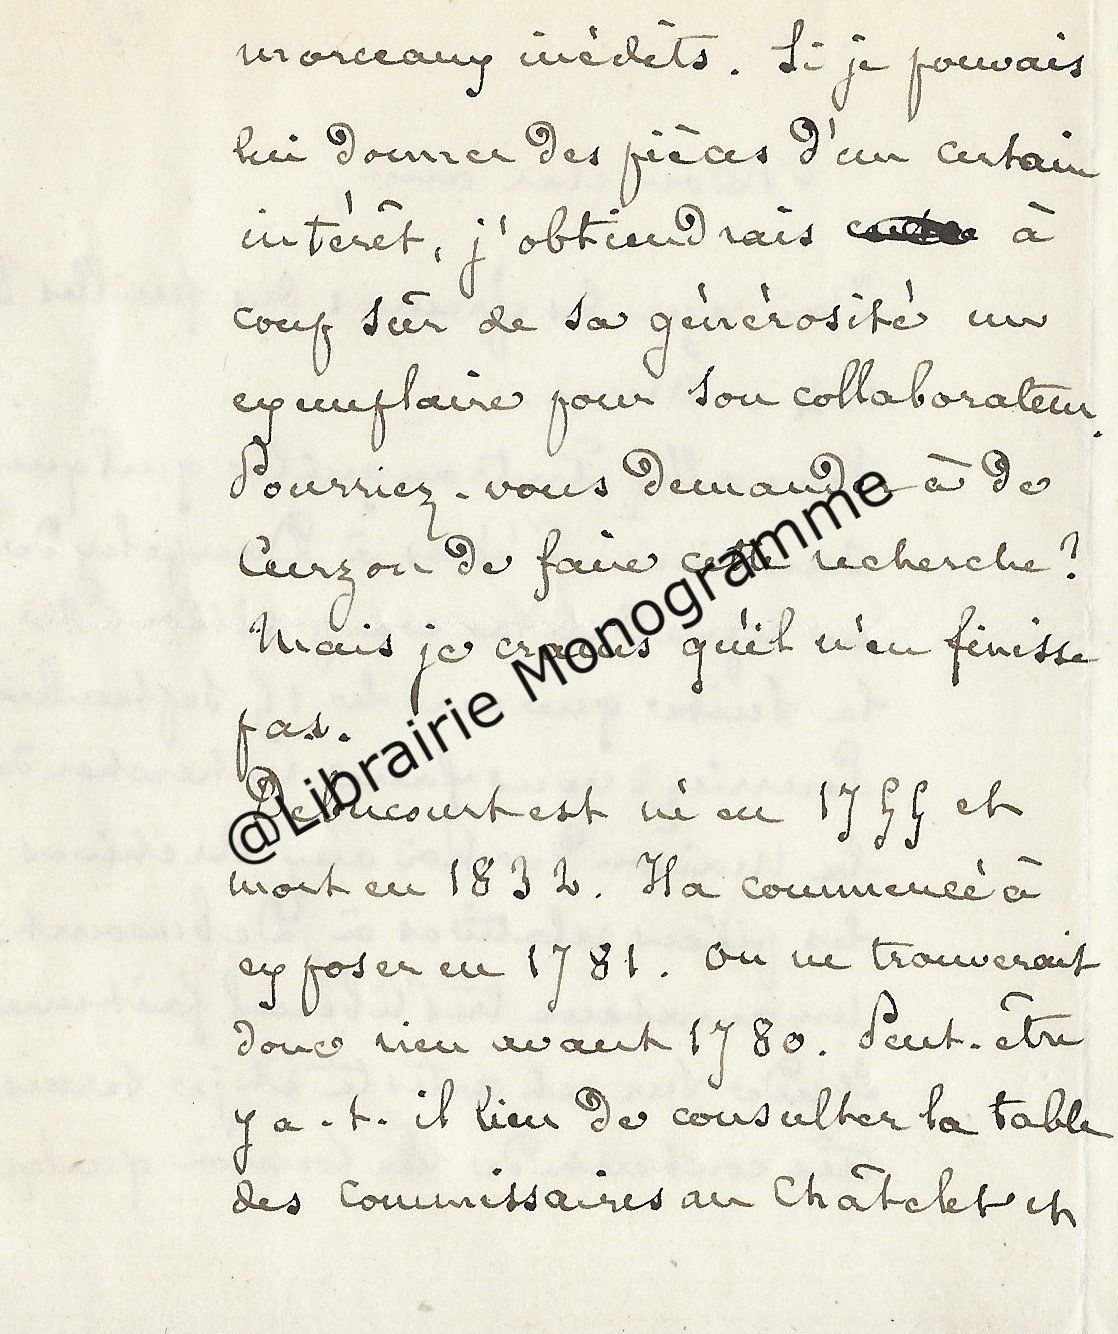 morceaux inédits. Si je pouvais
lui donner des pièces d'un certain
intérêt, j'obtiendrais à
coup sûr de sa générosité un
exemplaire pour son collaborateur.
Pourriez-vous demander à de
Curzon de faire cette recherche?
Mais je crains qu'il n'en finisse
pas.
Debucourt est né en 1755 et
mort en 1832. Il a commencé à
exposer en 1781. On ne trouverait
donc rien avant 1780. Peut-être
y a-t-il lieu de consulter la table
des commissaires au Châtelet et
@Librairie Monogramme